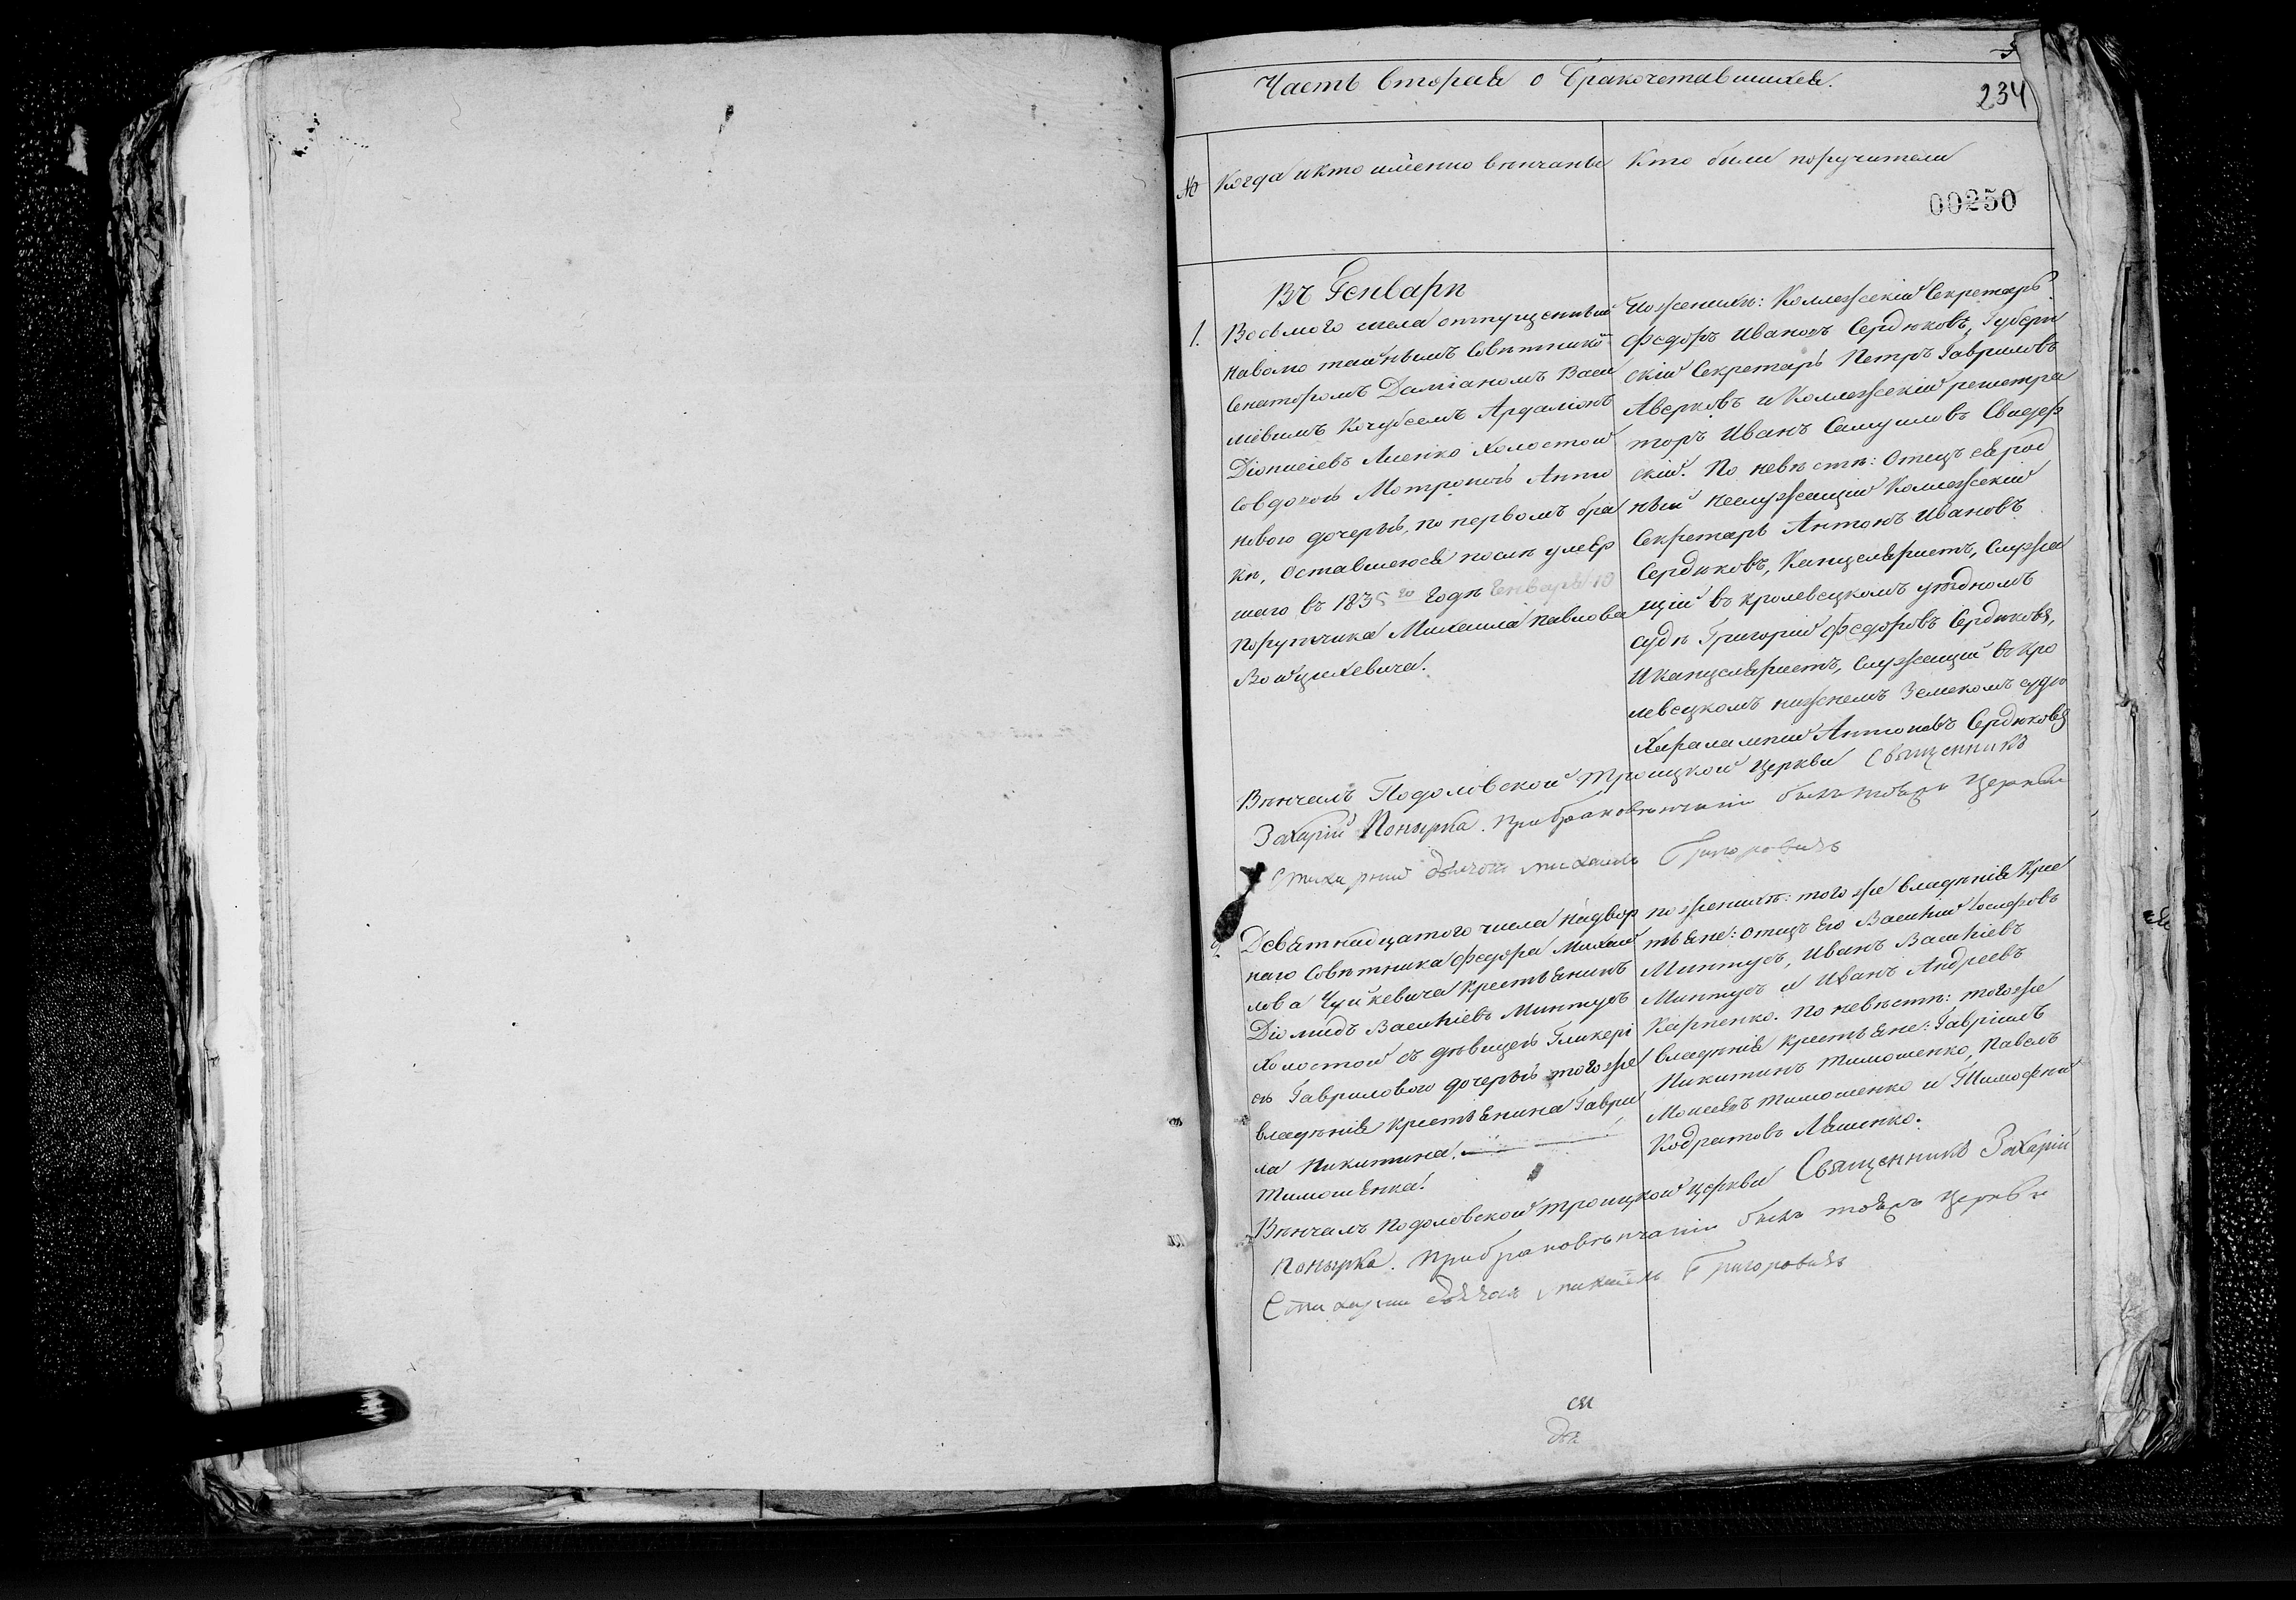 Часть вторая о бракосочетавшихся.
234
№
Когда и кто именно вѣнчаны
Кто были поручители
00250
Въ Генварѣ
1.
Восьмого числа отпущенный
на волю тайнымъ Совѣтникомъ
Сенаторомъ Даміаномъ Васи
ліевымъ Кочубеемъ Ардаліонъ
Діонисіевъ Лисенко холостой
со вдовою Матроною Анто
новою дочерью, по первомъ бра
кѣ, оставшеюся послѣ умер
шаго въ 1835го годѣ Генваря 10
порутчика Михаила Павлова
Войцеховича.
По женихѣ: Коллежскій Секретарь
Федоръ Ивановъ Сердюковъ, Губерн
скій Секретарь Петръ Гавриловъ
Аверковъ и Коллежскій регистра
торъ Иванъ Самуиловъ
скій. По невѣстѣ: Отецъ ея род
ный неслужащій Коллежскій
Секретарь Антонъ Ивановъ
Сердюковъ, Канцеляристъ, служа
щій въ кролевецкомъ уѣздномъ
судѣ Григорій Федоровъ Сердюковъ,
и канцеляристъ, служащій въ кро
левецкомъ нижнемъ Земскомъ судѣ
Харалампій Антоновъ Сердюковъ
Вѣнчалъ Подоловской Троицкой церкви Священникъ
Захарій Понырка. При браковѣнчаніи былъ тоя церкви
Стихарный дьячокъ Михаилъ Григоровичъ
2.
Девятнадцатого числа надвор
наго Совѣтника Федора Михай
лова Чуйкевича крестьянинъ
Діомидъ Василіевъ Минтусъ
холостой съ дѣвицею Гликері
ею Гавриловою дочерью того же
владѣнія крестьянина Гаври
ла Никитина
Тимошенка.
по женихѣ: того же владѣнія кре
стьяне: отецъ его Василій Іосифовъ
Минтусъ, Иванъ Василіевъ
Минтусъ и Иванъ Андреевъ
Карпенко. По невѣстѣ: того же
владѣнія крестьяне: Гавріилъ
Никитинъ Тимошенко, Павелъ
Моисеевъ Тимошенко и Тимофей
Кодратовъ Ляшенко.
Вѣнчалъ Подоловской Троицкой церкви Священникъ Захарій
Понырка. При браковѣнчаніи былъ тоя церкви
Стихарный дьячокъ Михаилъ Григоровичъ